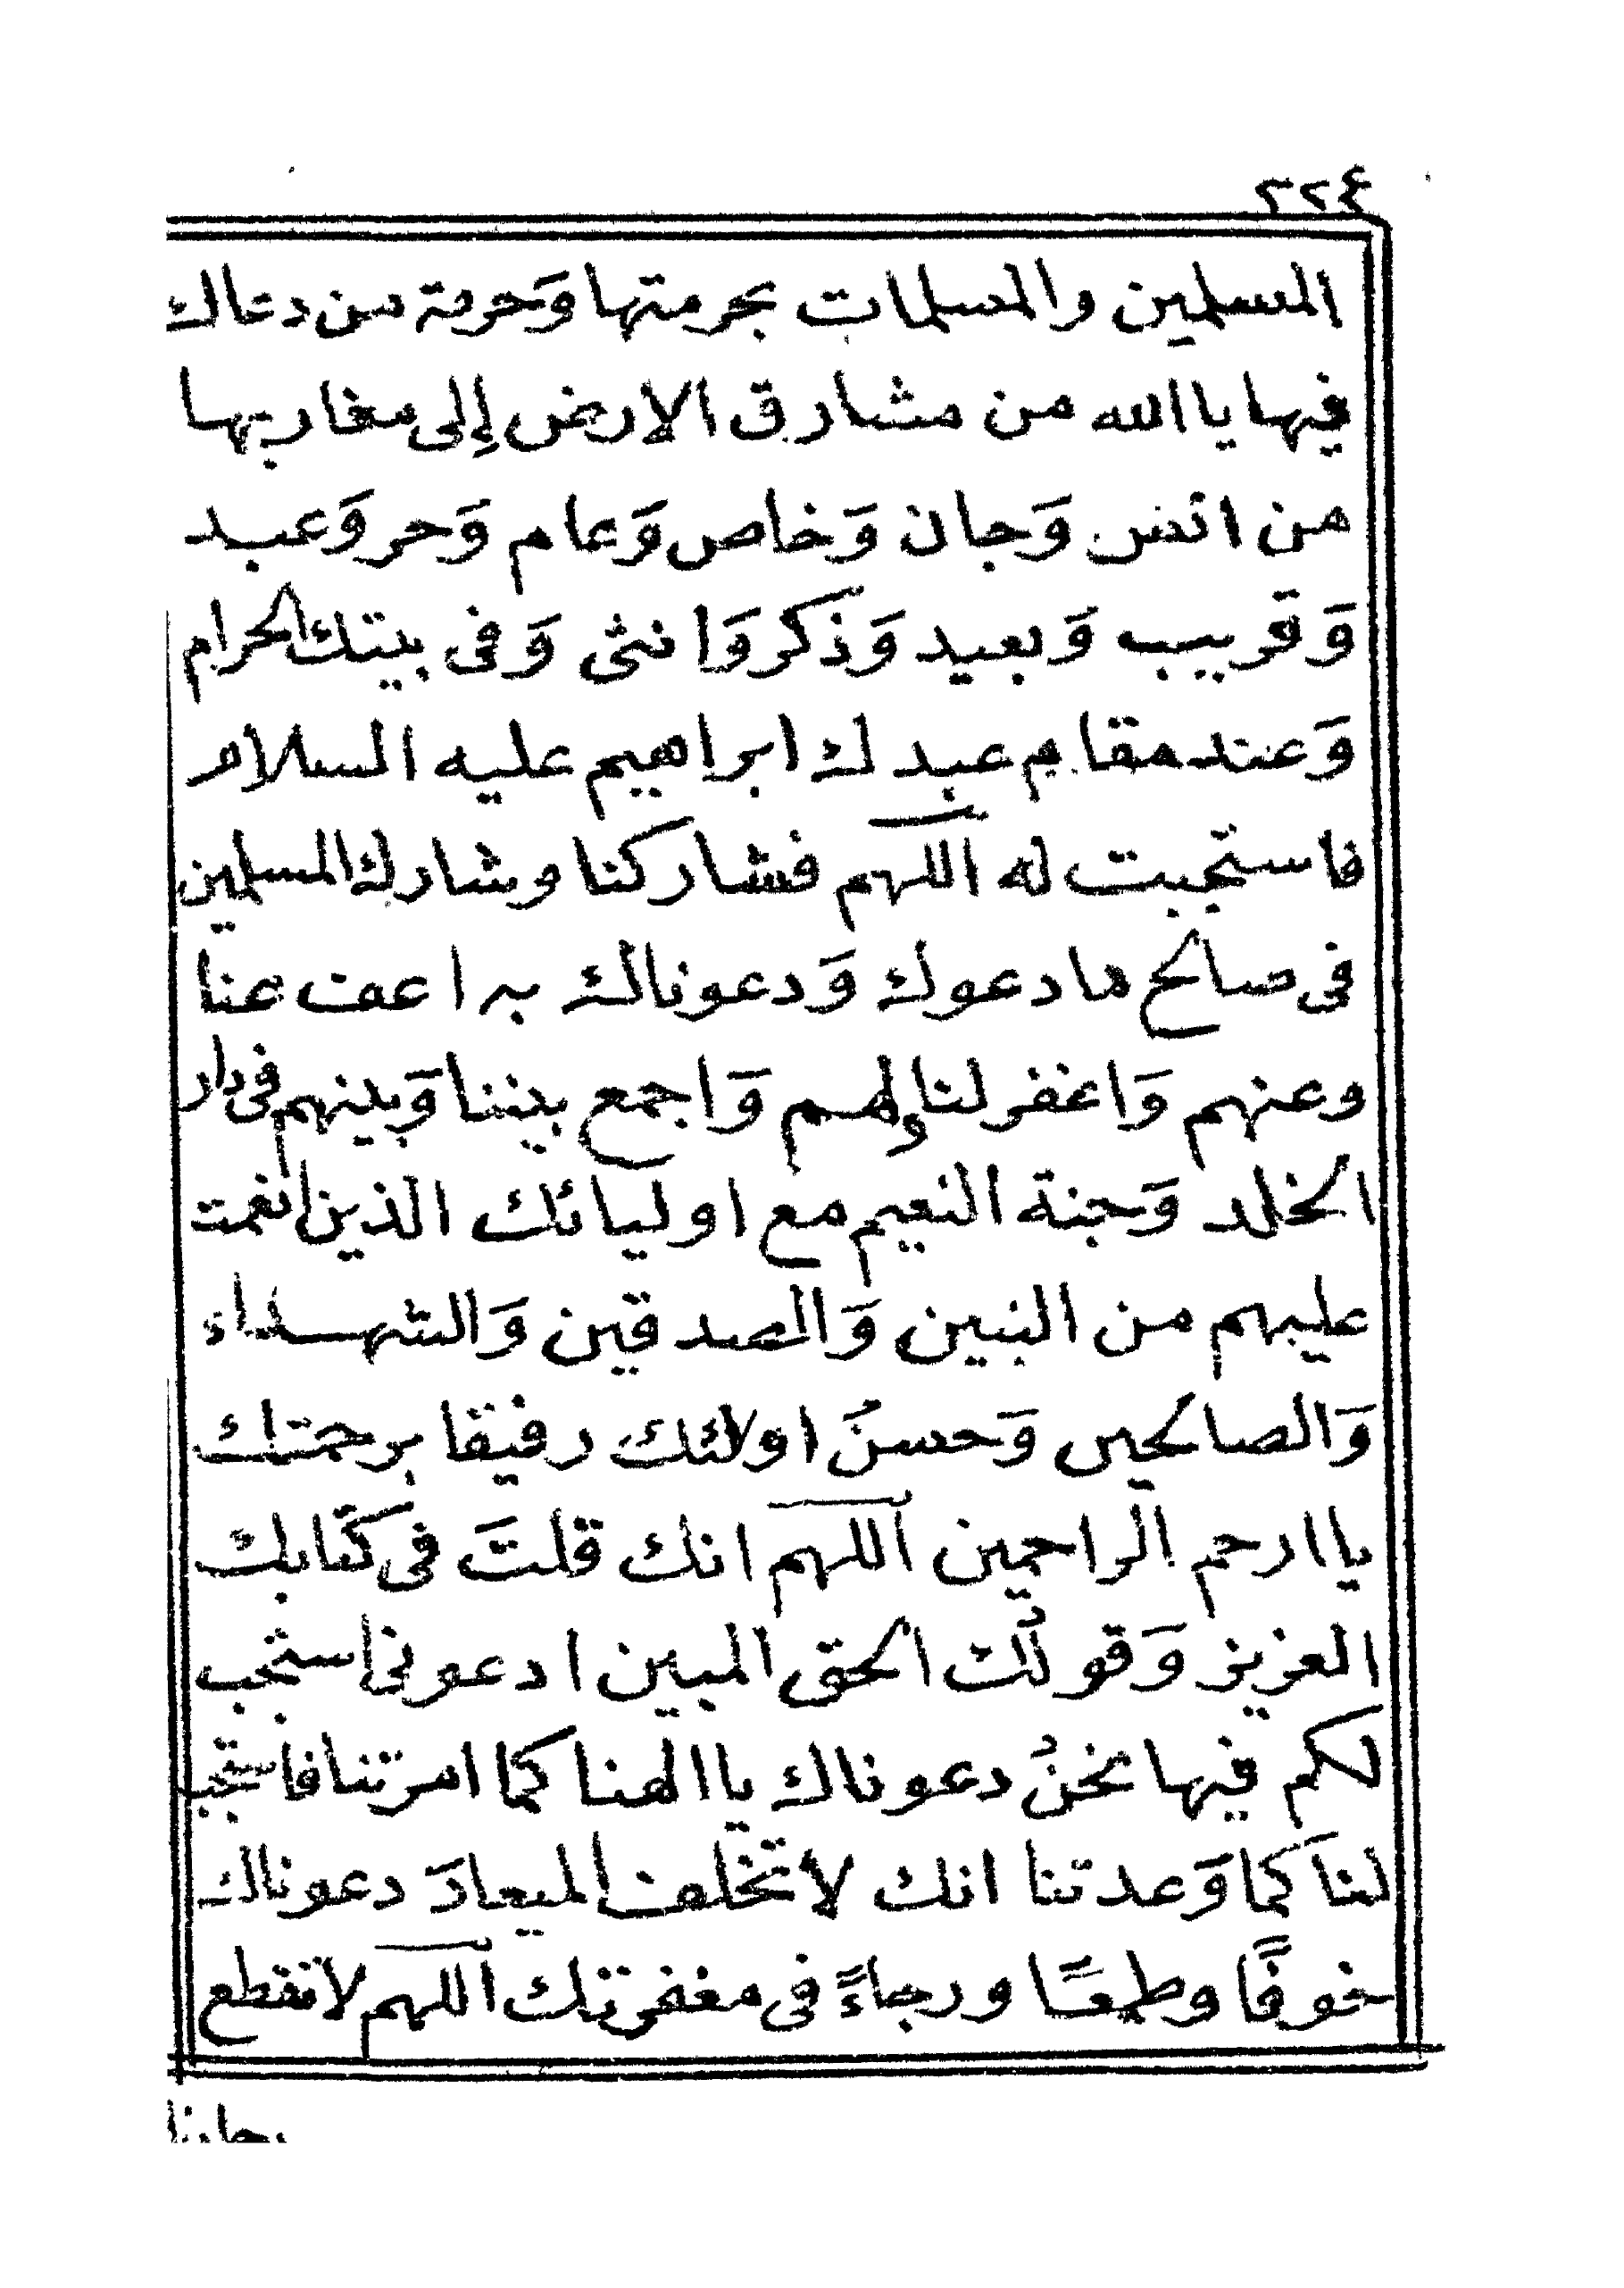 ٢٢٤
المسلمين والمسلمات بحرمتها وَحرمة من دعاك
فيها يا الله من مشارق الارض إلى مغاربها
من انس وَجان وَخاص وَعام وَحر وَعبد
وَقريب وَبعيد وَذكر وَانثى وَفى بيتك الحرام
وَعند مقام عبدك ابراهيم عليه السلام
فاستجبت له اللهم فشاركنا وشارك المسلمين
فى صالح ما دعوك وَدعوناك به اعف عنا
وعنهم وَاغفر لنا ولهم وَاجمع بيننا وَبينهم فى دار
الخلد وَجنة النعيم مع اوليائك الذين انعمت
عليهم من النبين وَالصدقين وَالشهداء
وَالصالحين وَحسنُ اولائك رفيقا برحمتك
يا ارحم الراحمين اللهم انك قلتَ فى كتابك
العزيز وَقولُك الحق المبين ادعونى استجب
لكم فيها نحنُ دعوناك يا الهنا كما امرتنا فاستجب
لنا كما وَعدتنا انك لا تخلف الميعادَ دعوناك
خوفًا وطمعًا ورجاءً فى مغفرتك اللهم لا تقطع